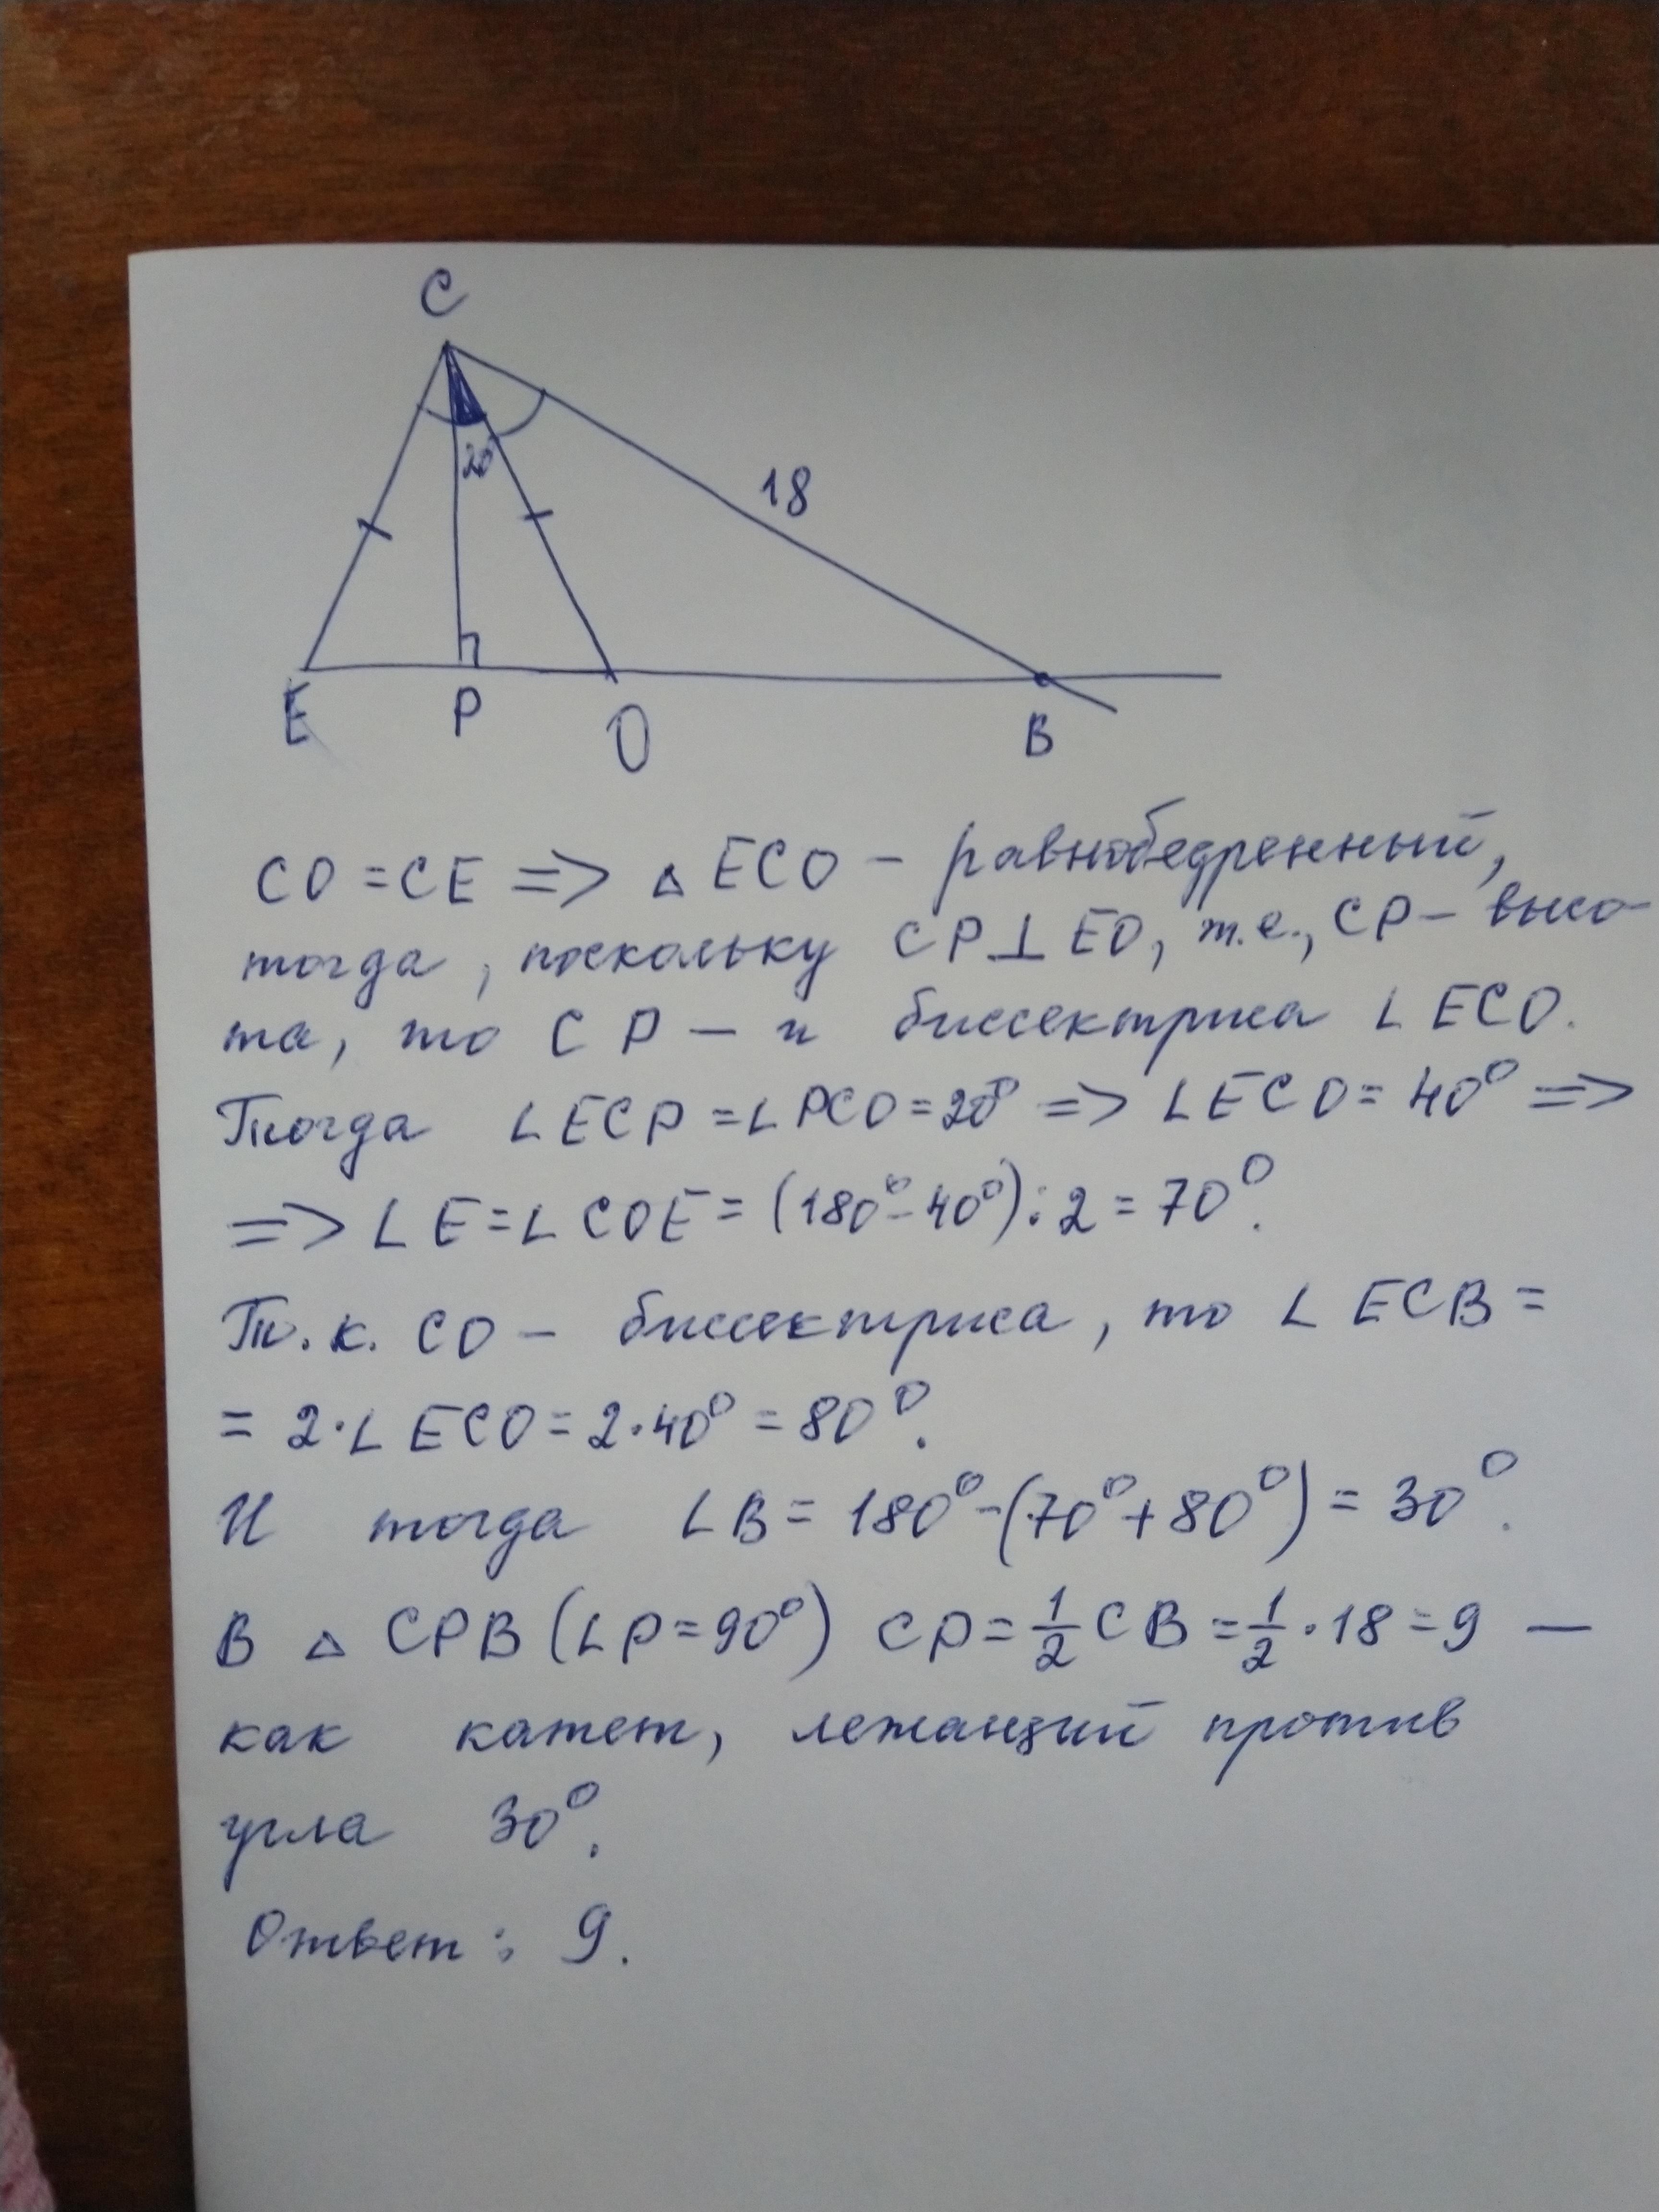 C
20
18
E P O B
CO = CE => △ ECO - равнобедренный,
тогда, поскольку CP⊥EO, т.е., CP - высо-
та, то CP - и биссектриса ∠ECO.
Тогда ∠ECP = ∠PCO = 20° => ∠ECO = 40° =>
=> ∠E = ∠COE = (180° - 40°) : 2 = 70°.
Т.к. CO - биссектриса, то ∠ECB =
= 2·∠ECO = 2·40° = 80°.
И тогда ∠B = 180° - (70° + 80°) = 30°.
В △ CPB (∠P = 90°) CP = 1/2 CB = 1/2 · 18 = 9 —
как катет, лежащий против
угла 30°.
Ответ: 9.